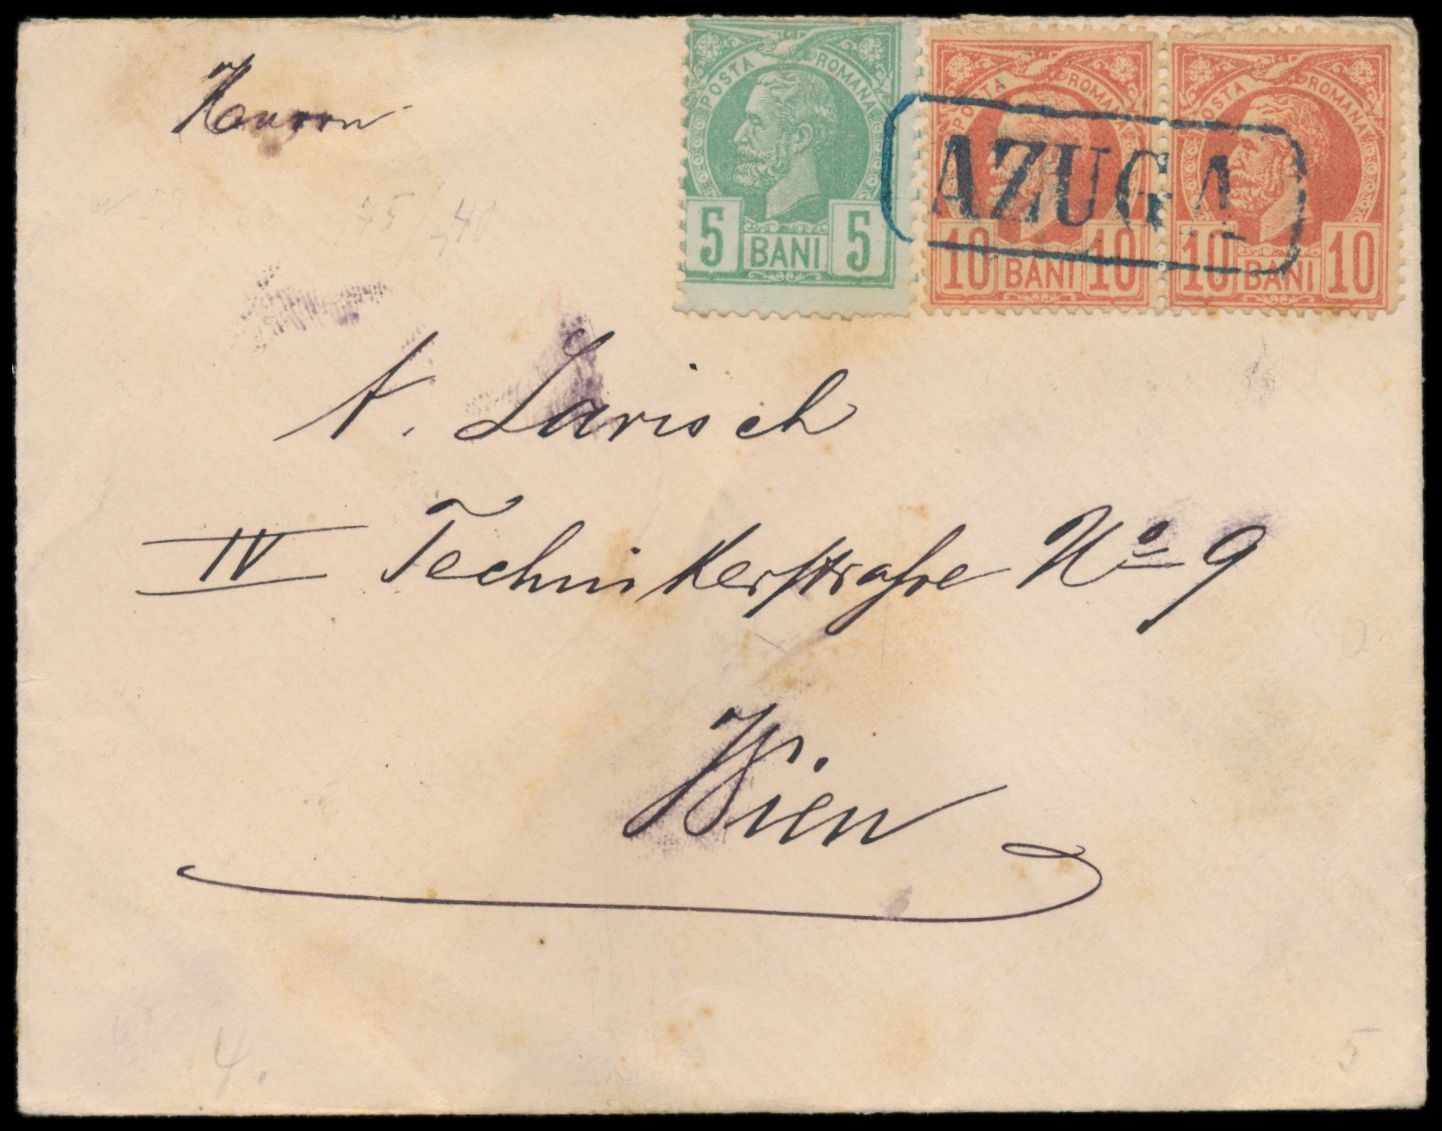 Herrn
POSTA ROMANA
5 BANI 5
POSTA ROMANA
10 BANI 10
POSTA ROMANA
10 BANI 10
AZUGA
75/40
A. Larisch
IV Technikerstraße No 9
Wien
4.
5